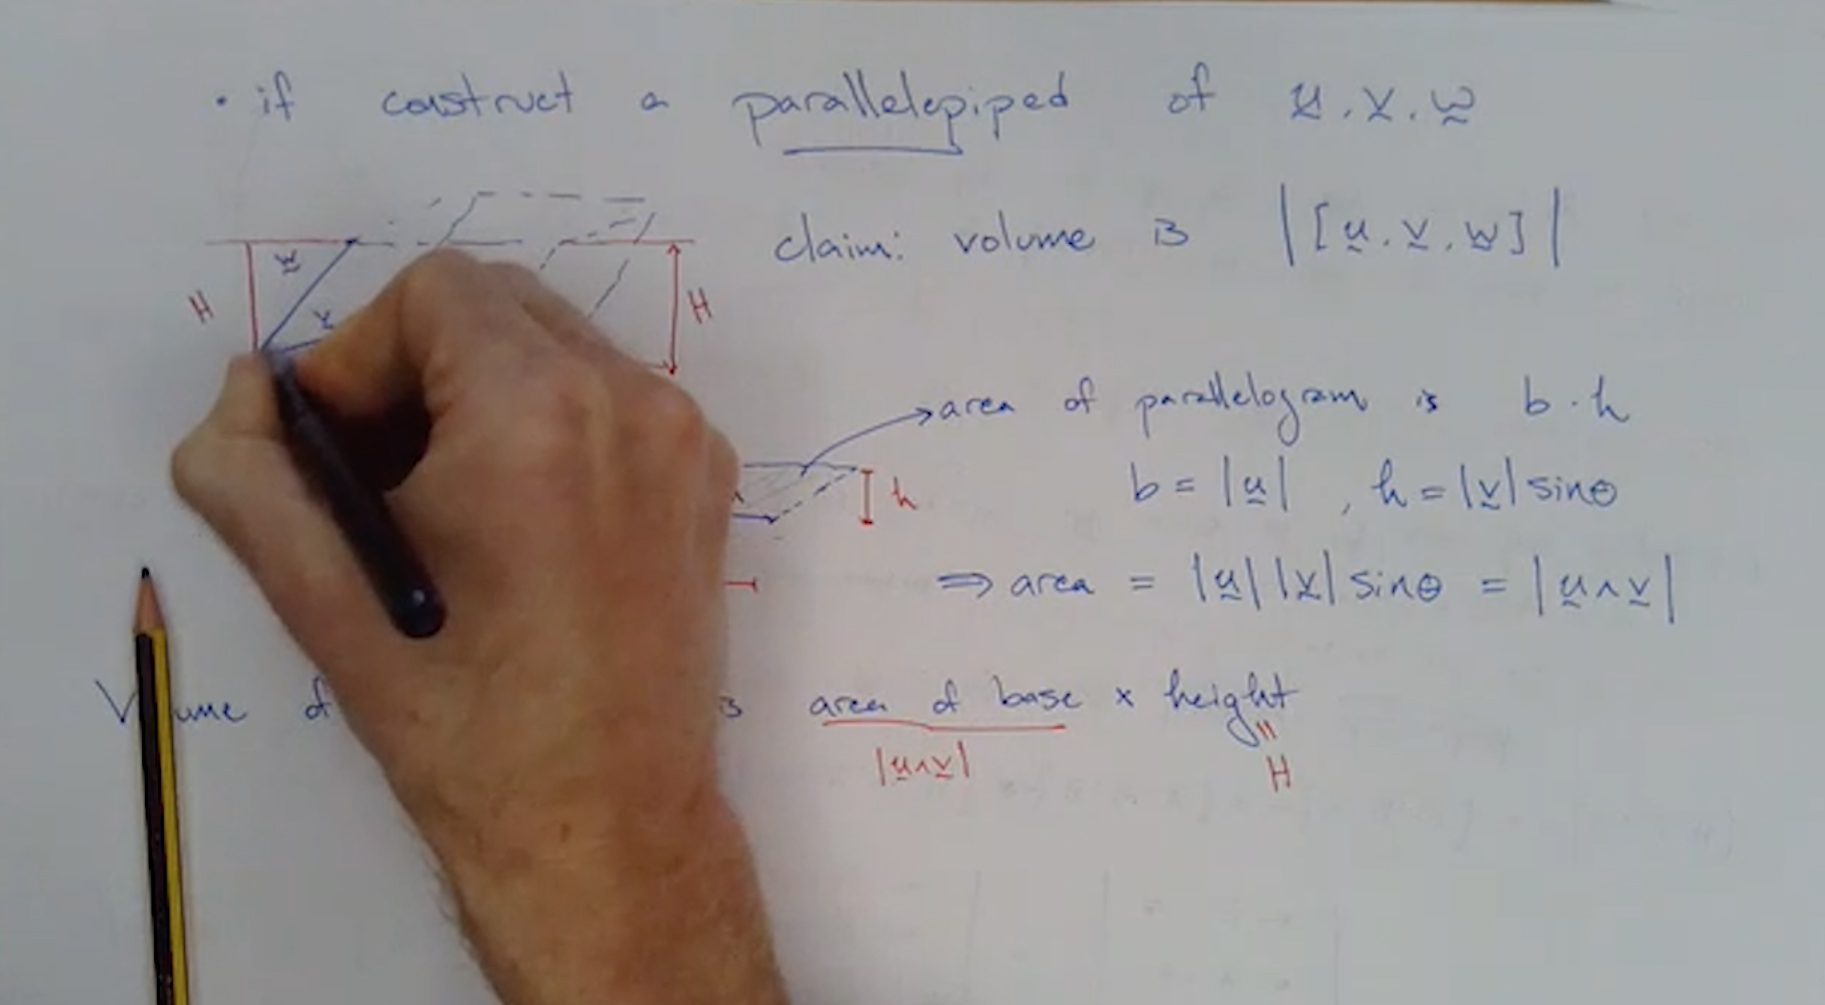 • if construct a parallelepiped of u, v, w
claim: volume is |[u, v, w]|
w
H
v
H
area of parallelogram is b · h
b = |u| , h = |v| sinθ
h
⇒ area = |u| |v| sinθ = |u ∧ v|
of is area of base × height
|u∧v| = H